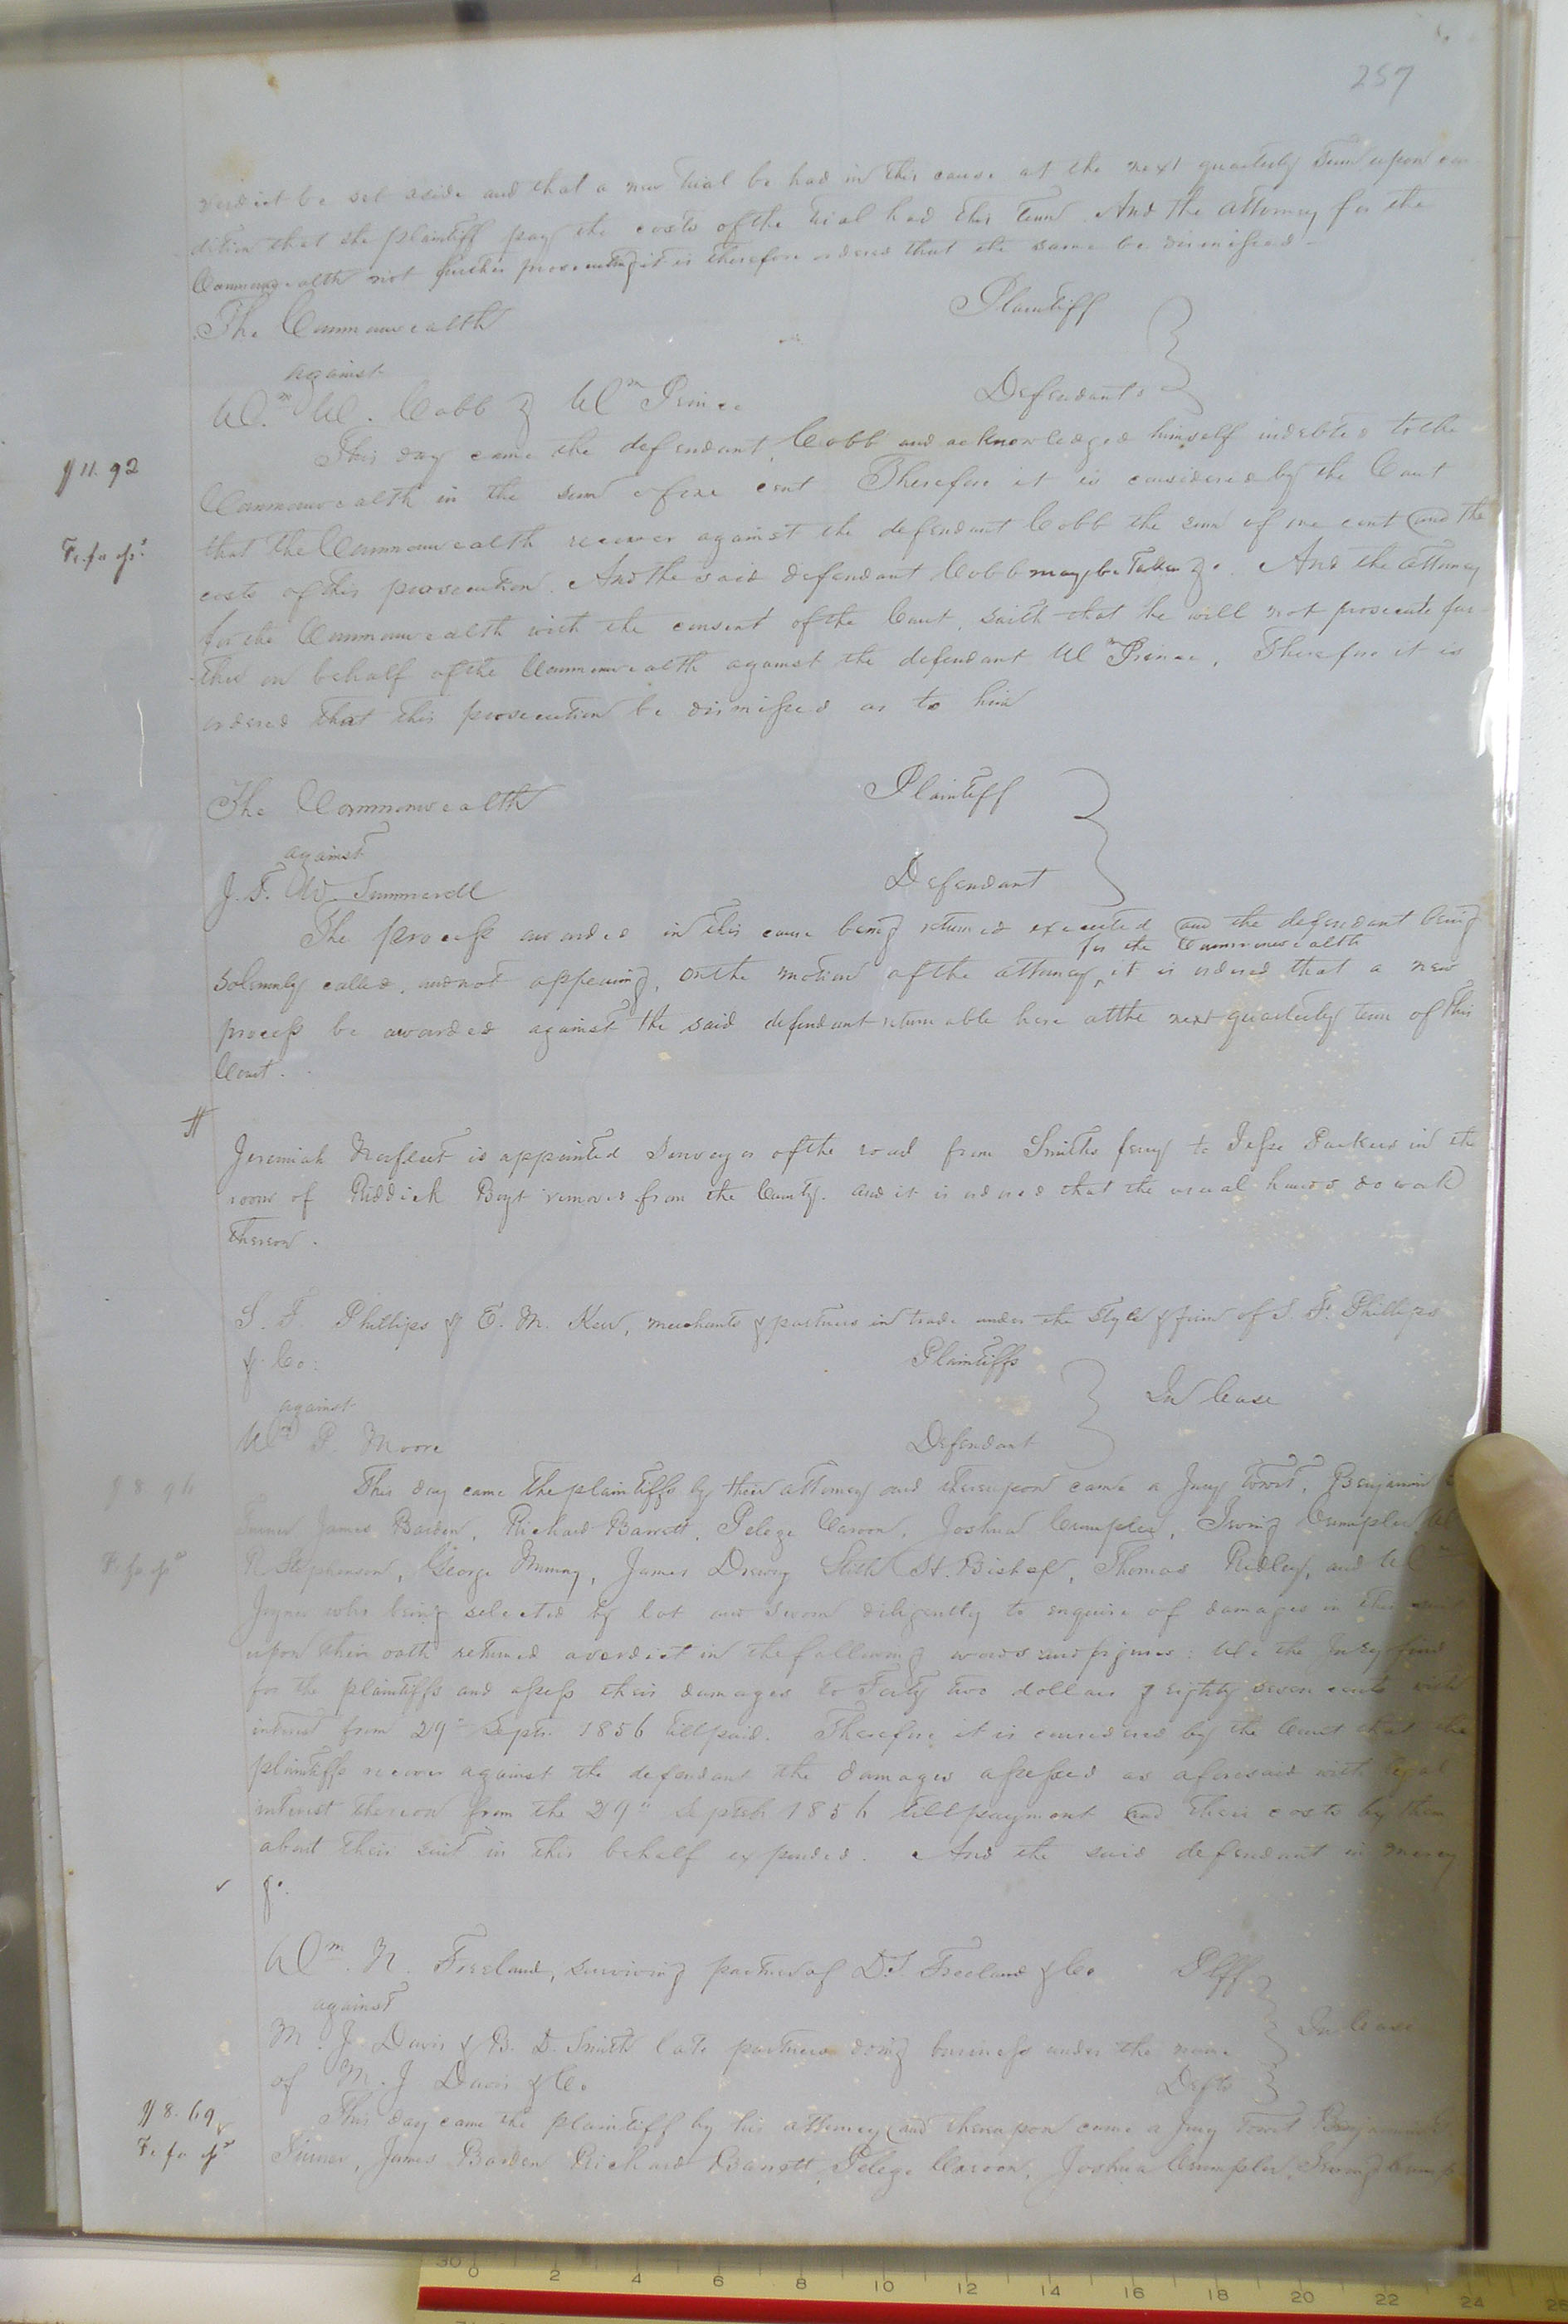 257
verdict be set aside and that a new trial be had in this cause at the next quarterly Term upon con-
dition that the plaintiff pay the costs of the trial had this Term. And the attorney for the
Commonwealth not further prosecuting it is therefore ordered that the same be dismissed
The Commonwealth Plaintiff
against
Wm W. Cobb & Wm Prince Defendants
This day came the defendant Cobb and acknowledged himself indebted to the
$11.92
Commonwealth in the sum of one cent Therefore it is considered by the Court
that the Commonwealth recover against the defendant Cobb the sum of one cent and the
Fi. fa
costs of this prosecution. And the said defendant Cobb may be Taken &c. And the attorney
for the Commonwealth with the consent of the Court, saith that he will not prosecute fur-
ther on behalf of the Commonwealth against the defendant Wm Prince, Therefore it is
ordered that this prosecution be dismissed as to him
The Commonwealth Plaintiff
against
J. F. W. Summerell Defendant
The process awarded in this cause being returned executed and the defendant being
for the Commonwealth
solemnly called, and not appearing, on the motion of the attorney, it is ordered that a new
process be awarded against the said defendant returnable here at the next quarterly term of this
Court.
Jeremiah Norfleet is appointed Surveyor of the road from Smiths ferry to Jesse Parkers in the
room of Riddick Boyt removed from the County. and it is ordered that the usual hands do work
thereon.
S. F. Phillips & E. M. Kew, merchants & partners in trade under the style & firm of S. F. Phillips
& Co: Plaintiffs
In Case
against
Wm P. Moore Defendant
$8.96
This day came the plaintiffs by their attorney and thereupon came a Jury towit, Benjamin
Turner, James Barden, Richard Barrett, Pelege Caroon, Joshua Crumpler, Irving Crumpler,
Fi. fa
R. Stephenson, George Murray, James Drewry, Stith H. Bishop, Thomas Ridley, and Wm
Joyner who being selected by lot and sworn diligently to enquire of damages in this
upon their oath returned a verdict in the following words and figures: We the Jury find
for the plaintiffs and assess their damages to Forty two dollars & eighty seven cents with
interest from 29th Septr. 1856 till paid. Therefore it is considered by the Court that the
plaintiffs recover against the defendant the damages assessed as aforesaid with legal
interest thereon from the 29th Septebr 1856 till payment and their costs by them
about their suit in this behalf expended. And the said defendant in mercy
&c.
Wm. N. Freeland, surviving partner of D. S. Freeland & Co Plff.
against
In Case
M. J. Davis & B. D. Smith late partners doing business under the name
of M. J Davis & Co Defts
$8.69
This day came the plaintiff by his attorney and thereupon came a Jury towit Benjamin
Fi. fa
Turner, James Barden Richard Barrett, Pelege Caroon, Joshua Crumpler, Irving Crump